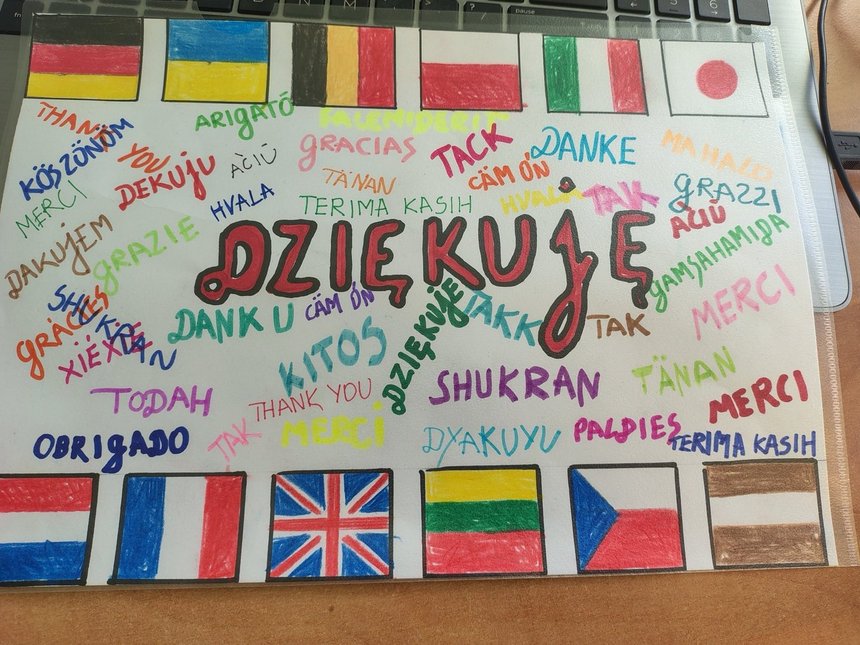 THANK YOU
ARIGATÓ
FALEMIDERIT
KÖSZÖNÖM
DEKUJU
AČIŪ
GRACIAS
TACK
DANKE
MAHALO
MERCI
HVALA
TÄNAN
CÁM ÓN
HVALA
TAK
GRAZZI
TERIMA KASIH
AČIŪ
DAKUJEM
GRAZIE
DZIĘKUJĘ
GAMSAHAMIDA
GRÀCIES
SHUKRAN
XIÉXIE
DANK U
CÁM ÓN
DZIĘKUJĘ
TAKK
TAK
MERCI
KITOS
TODAH
THANK YOU
SHUKRAN
TÄNAN
MERCI
OBRIGADO
TAK
MERCI
DYAKUYU
PALDIES
TERIMA KASIH